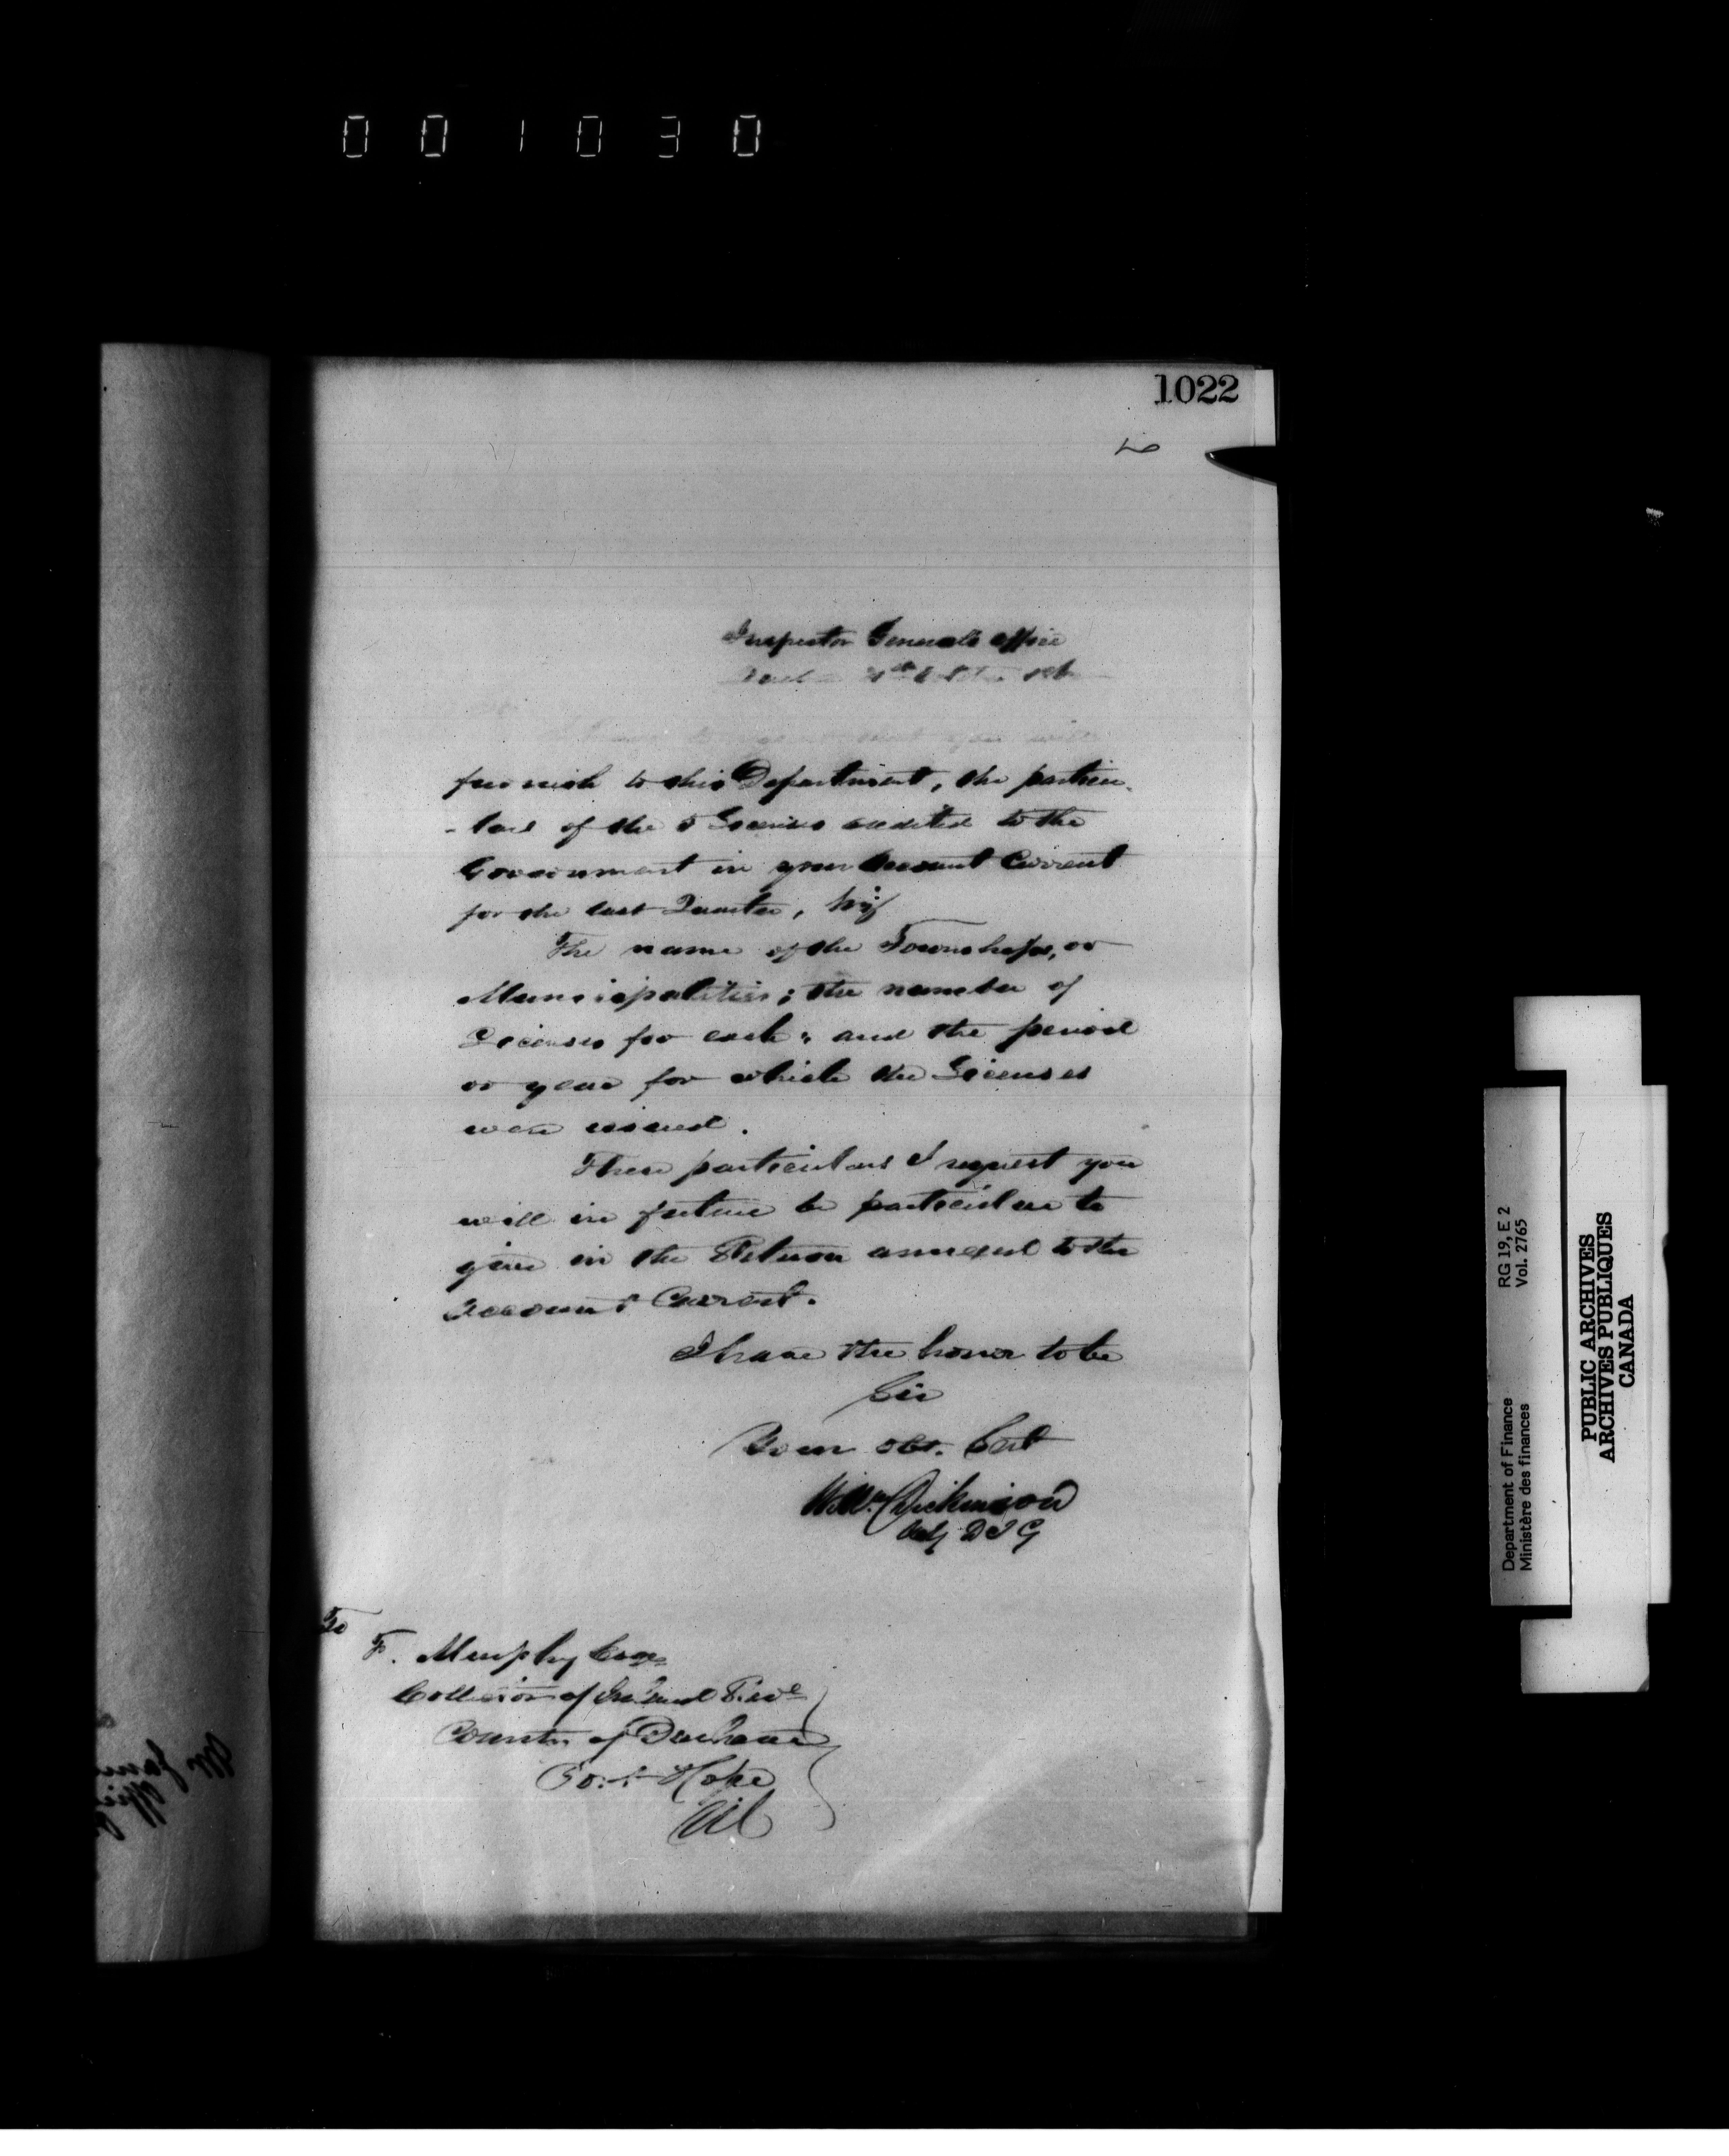 001030
1022
Inspector General's Office
you will
furnish to this Department, the particu-
-lars of the 5 Licenses credited to the
Government in your Account Current
for the last Quarter, viz
The name of the Townships, or
Municipalities; the number of
Licenses for each; and the period
or year for which the Licenses
were issued.
These particulars I request you
will in future be particular to
give in the Return annexed to the
Account Current.
I have the honor to be
Sir
Your obt. Servt
Wm. Dickinson
Actg D I G
To
F. Murphy Esqr
Collector of Inland Reve
County of Durham
Port Hope
Department of Finance RG 19, E 2
Ministère des finances Vol. 2765
PUBLIC ARCHIVES
ARCHIVES PUBLIQUES
CANADA